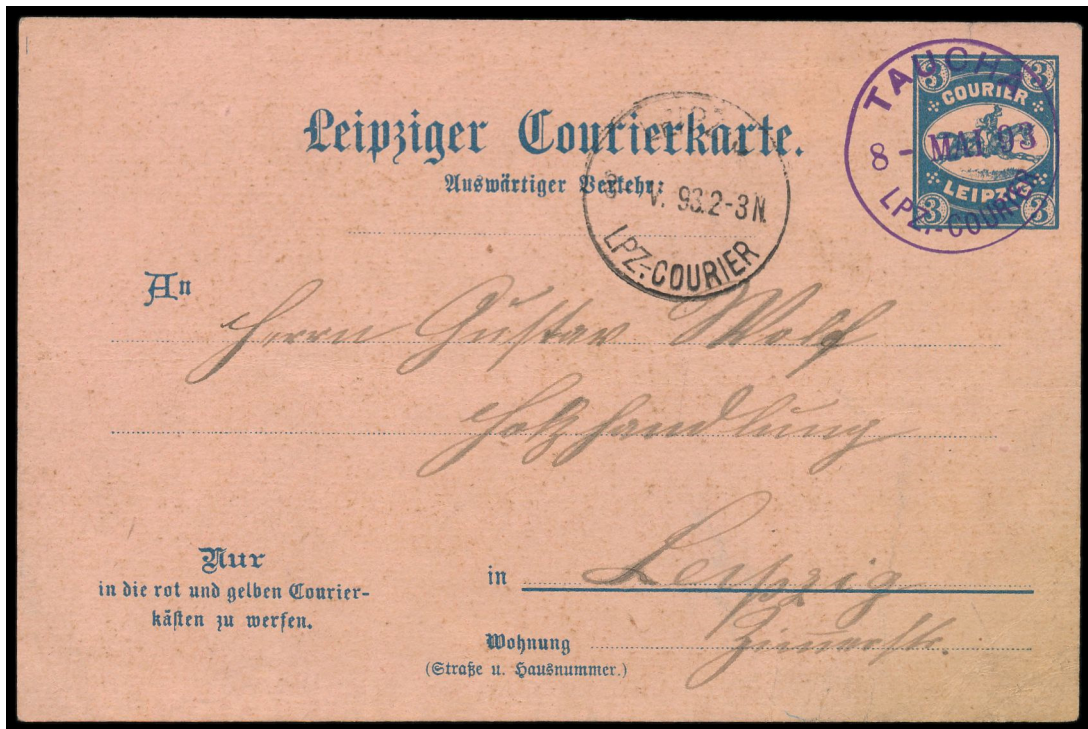 Leipziger Courierkarte.
Auswärtiger Verkehr:
TAUCHA
8 - MAI 93
LPZ.-COURIER
3 3
COURIER
LEIPZIG
3 3
8 V. 93.2-3N.
LPZ.-COURIER
An
Herrn Gustav Wolf
Holzhandlung
Nur
in die rot und gelben Courier-
kästen zu werfen.
in Leipzig
Wohnung
(Straße u. Hausnummer.)